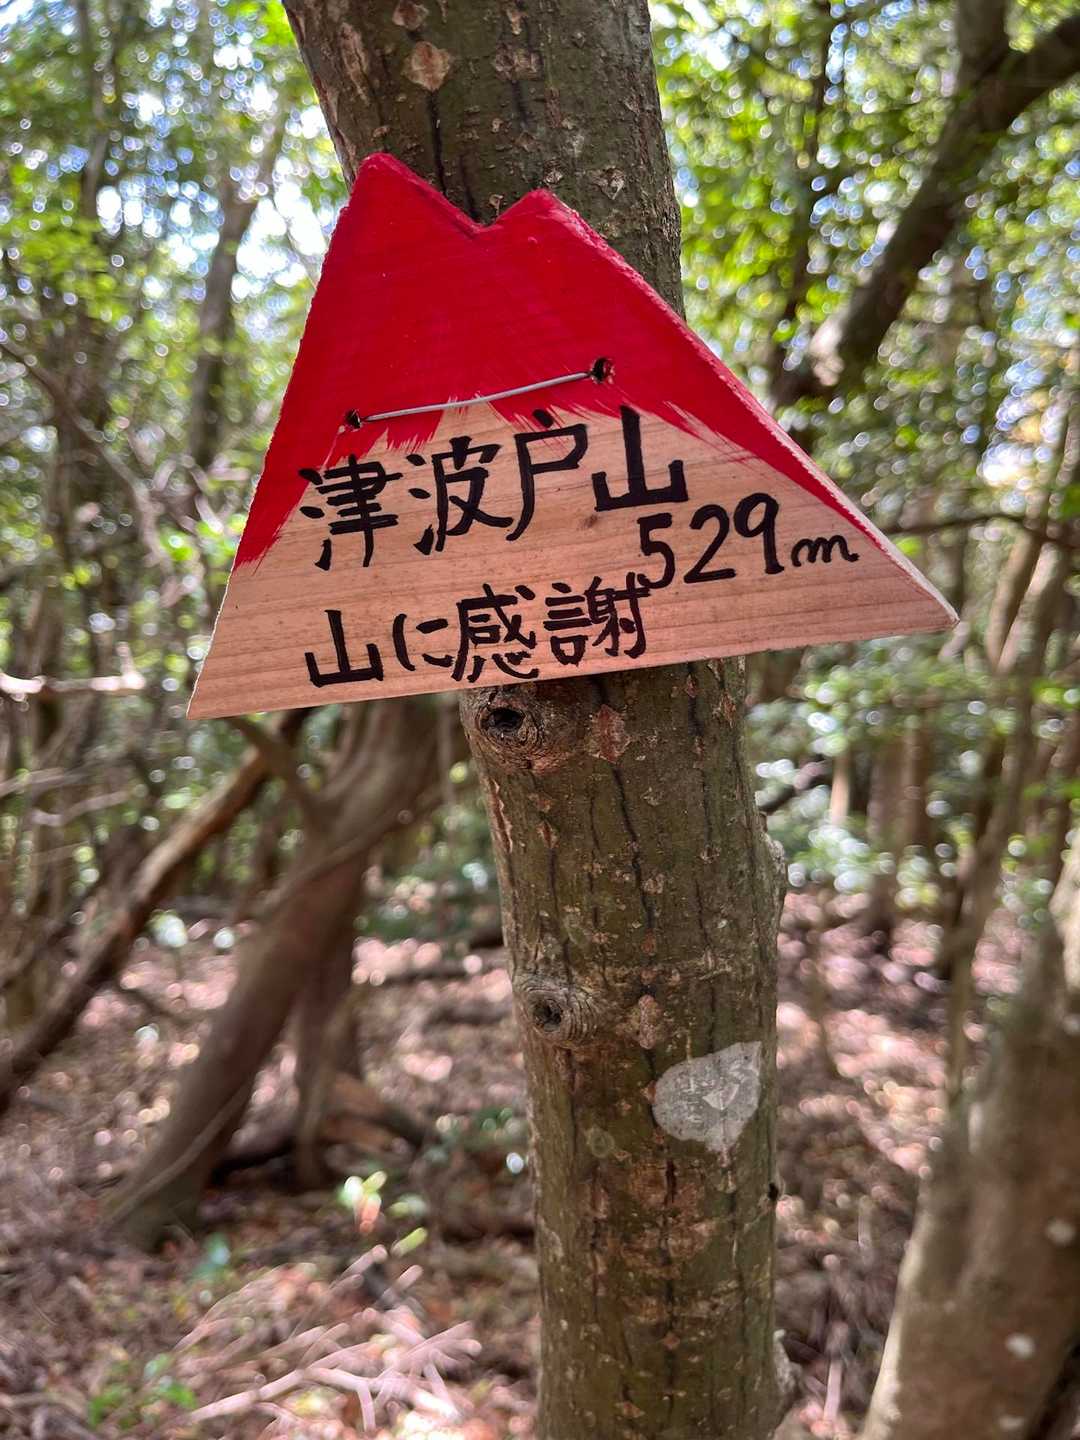 津波戸山
529m
山に感謝